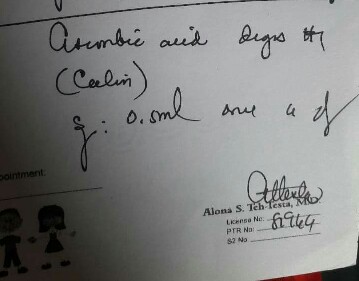 Ascorbic acid drops #1
(Ceelin)
Sig: 0.5ml once a day
appointment:
Alona S. Teh-Testa, MD
License No: 89964
PTR No:
S2 No